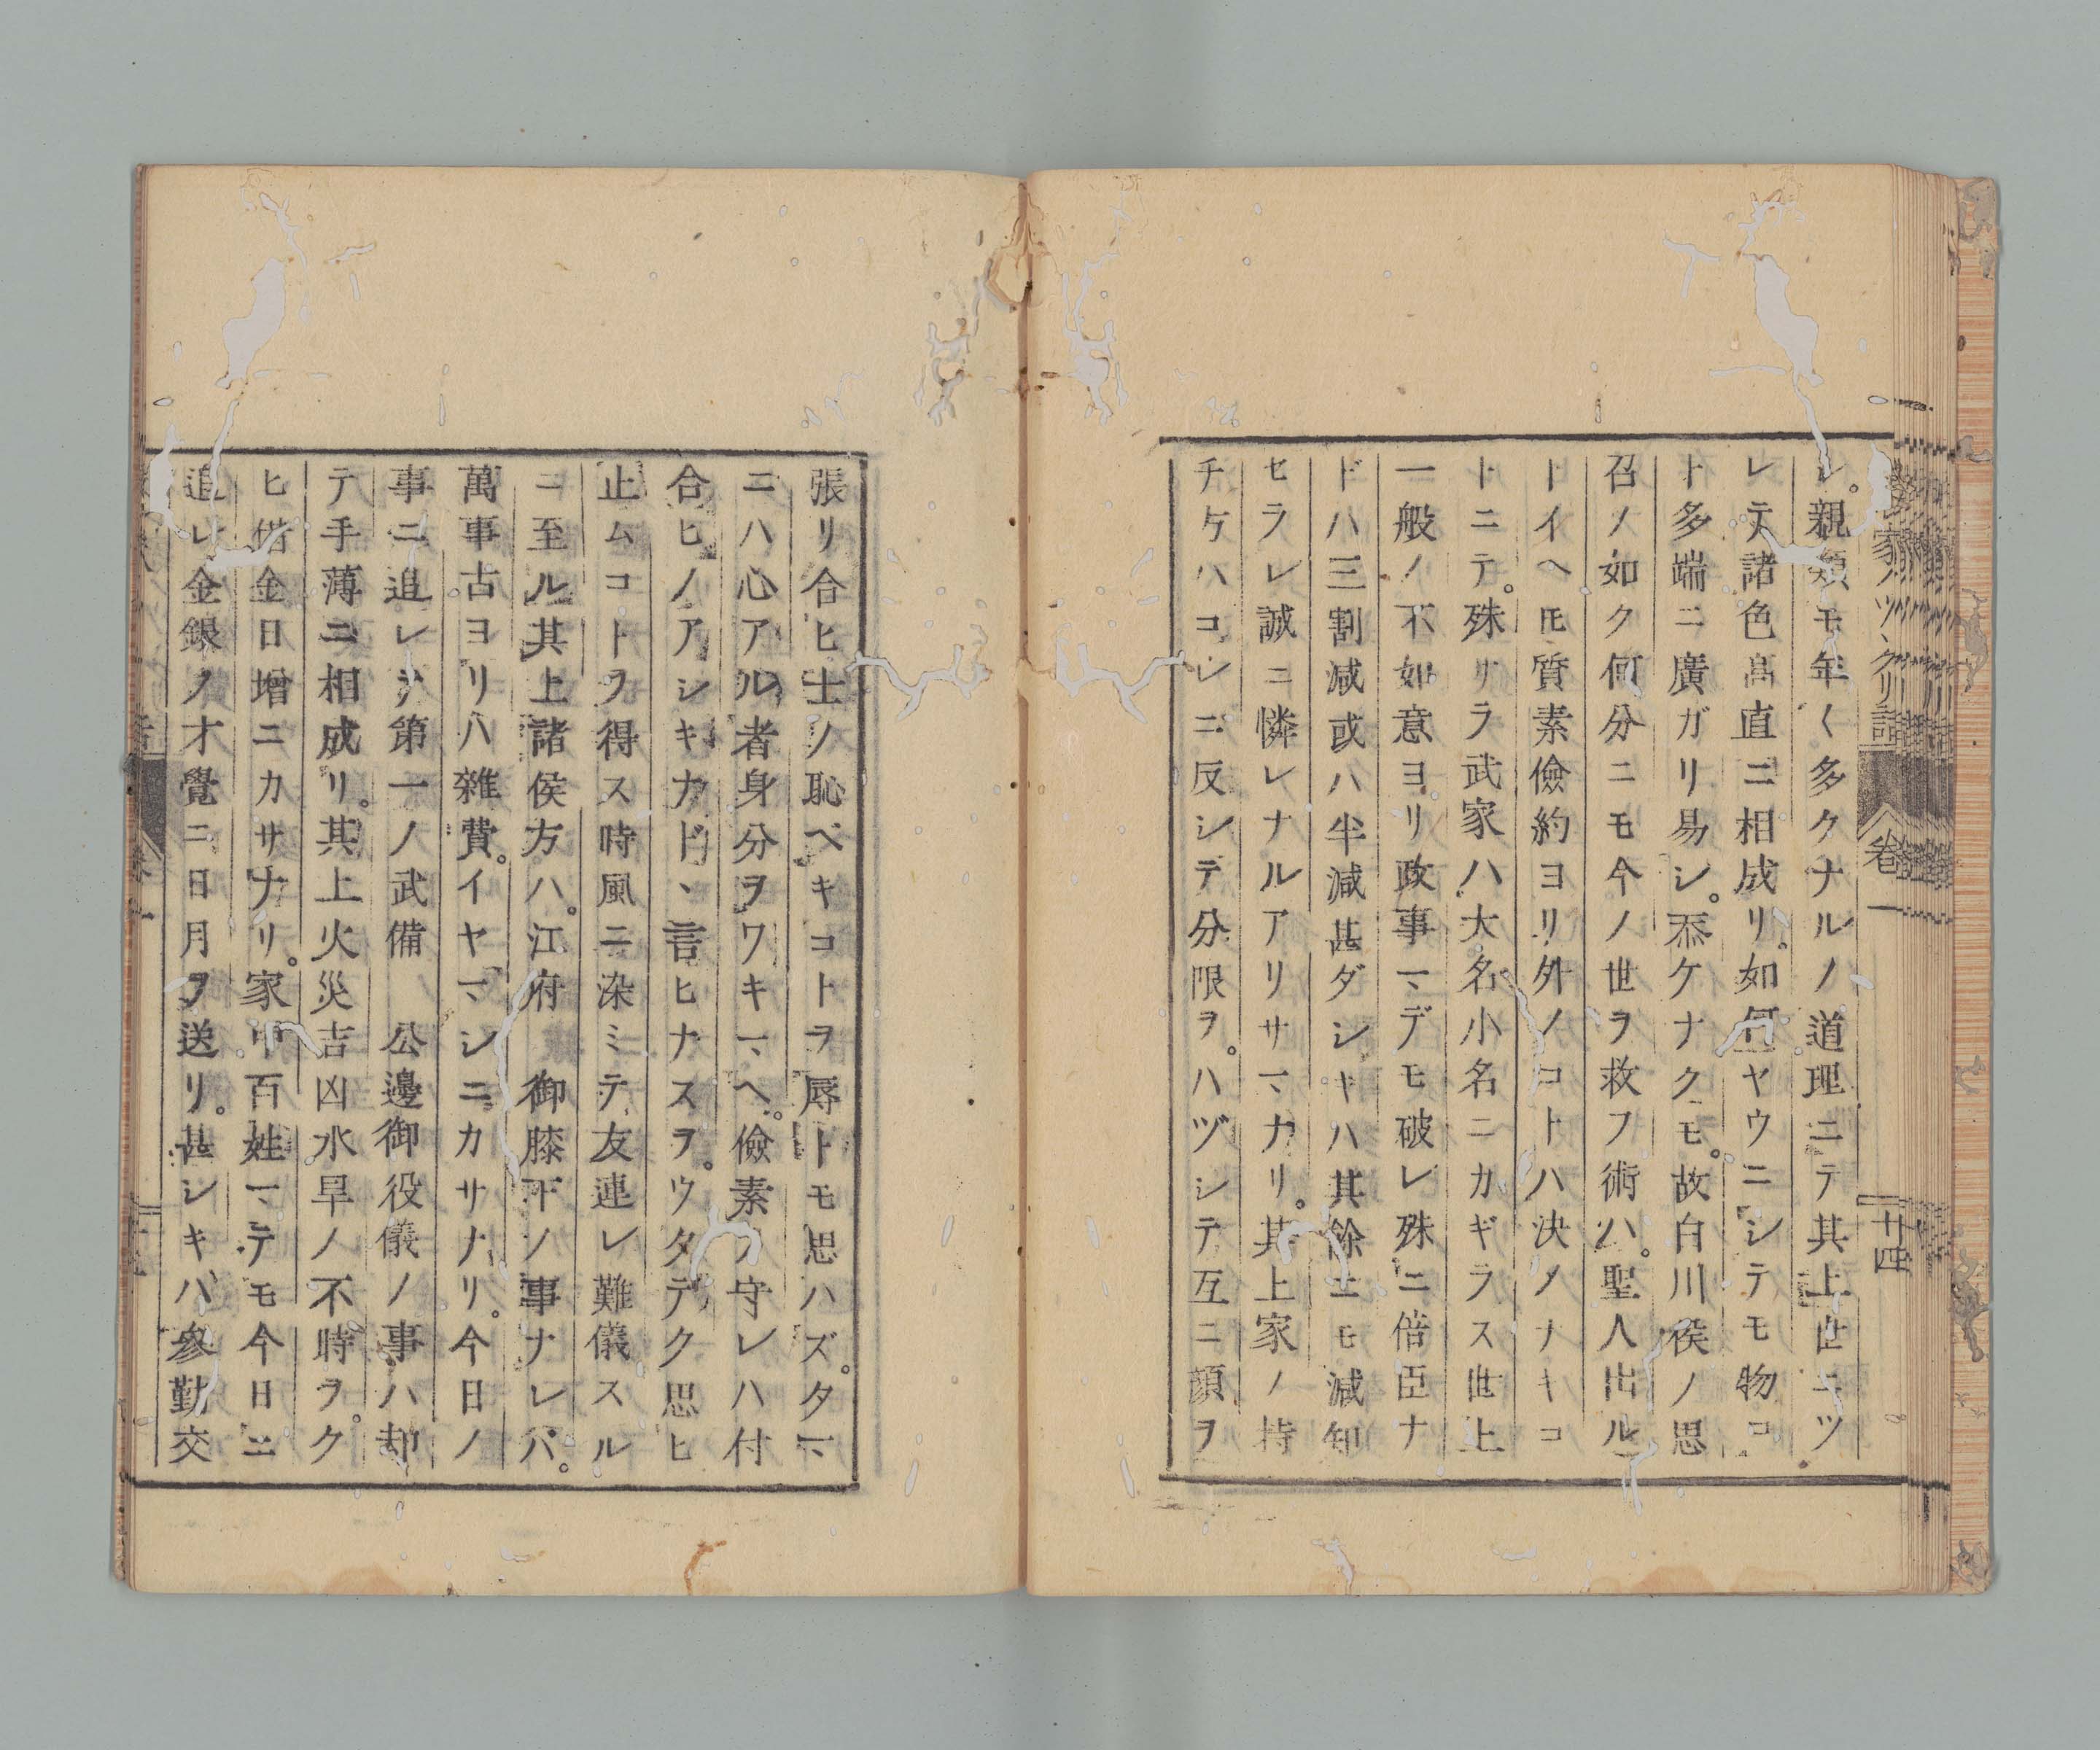 家ノツヽクリ話 卷一 十四
シ。親類モ年〱多クナルノ道理ニテ其上世ニツ
レテ諸色髙直ニ相成リ。如何ヤウニシテモ物コ
ト多端ニ廣ガリ易シ。忝ケナクモ。故白川侯ノ思
召ノ如ク何分ニモ今ノ世ヲ救フ術ハ。聖人出ル
トイヘ𪜈質素儉約ヨリ外ノコトハ決ノナキコ
トニテ。殊サラ武家ハ大名小名ニカギラス世上
一般ノ不如意ヨリ政事マデモ破レ殊ニ倍臣ナ
ドハ三割減或ハ半減甚ダシキハ其餘ニモ減知
セラレ誠ニ憐レナルアリサマナリ。其上家ノ持
チケハコレニ反シテ分限ヲ。ハヅシテ互ニ顔ヲ
張リ合ヒ士ノ恥ベキコトヲ辱トモ思ハズ。タマ
ニハ心アル者身分ヲワキマヘ。儉素ヲ守レハ付
合ヒノアシキナド丶言ヒナスヲ。ウタデク思ヒ
止ムコトヲ得ス時風ニ染ミテ友連レ難儀スル
ニ至ル其上諸侯方ハ。江府 御膝下ノ事ナレバ。
萬事古ヨリハ雜費。イヤマシニカサナリ。今日ノ
事ニ追レテ第一ノ武備ノ 公邊御役儀ノ事ハ却
テ手薄ニ相成リ。其上火災吉凶水旱ノ不時ヲ。ク
ヒ借金日增ニカサナリ。家中百姓マテモ今日ニ
追レ金銀ノ才覺ニ日月ヲ送リ。甚シキハ參勤交